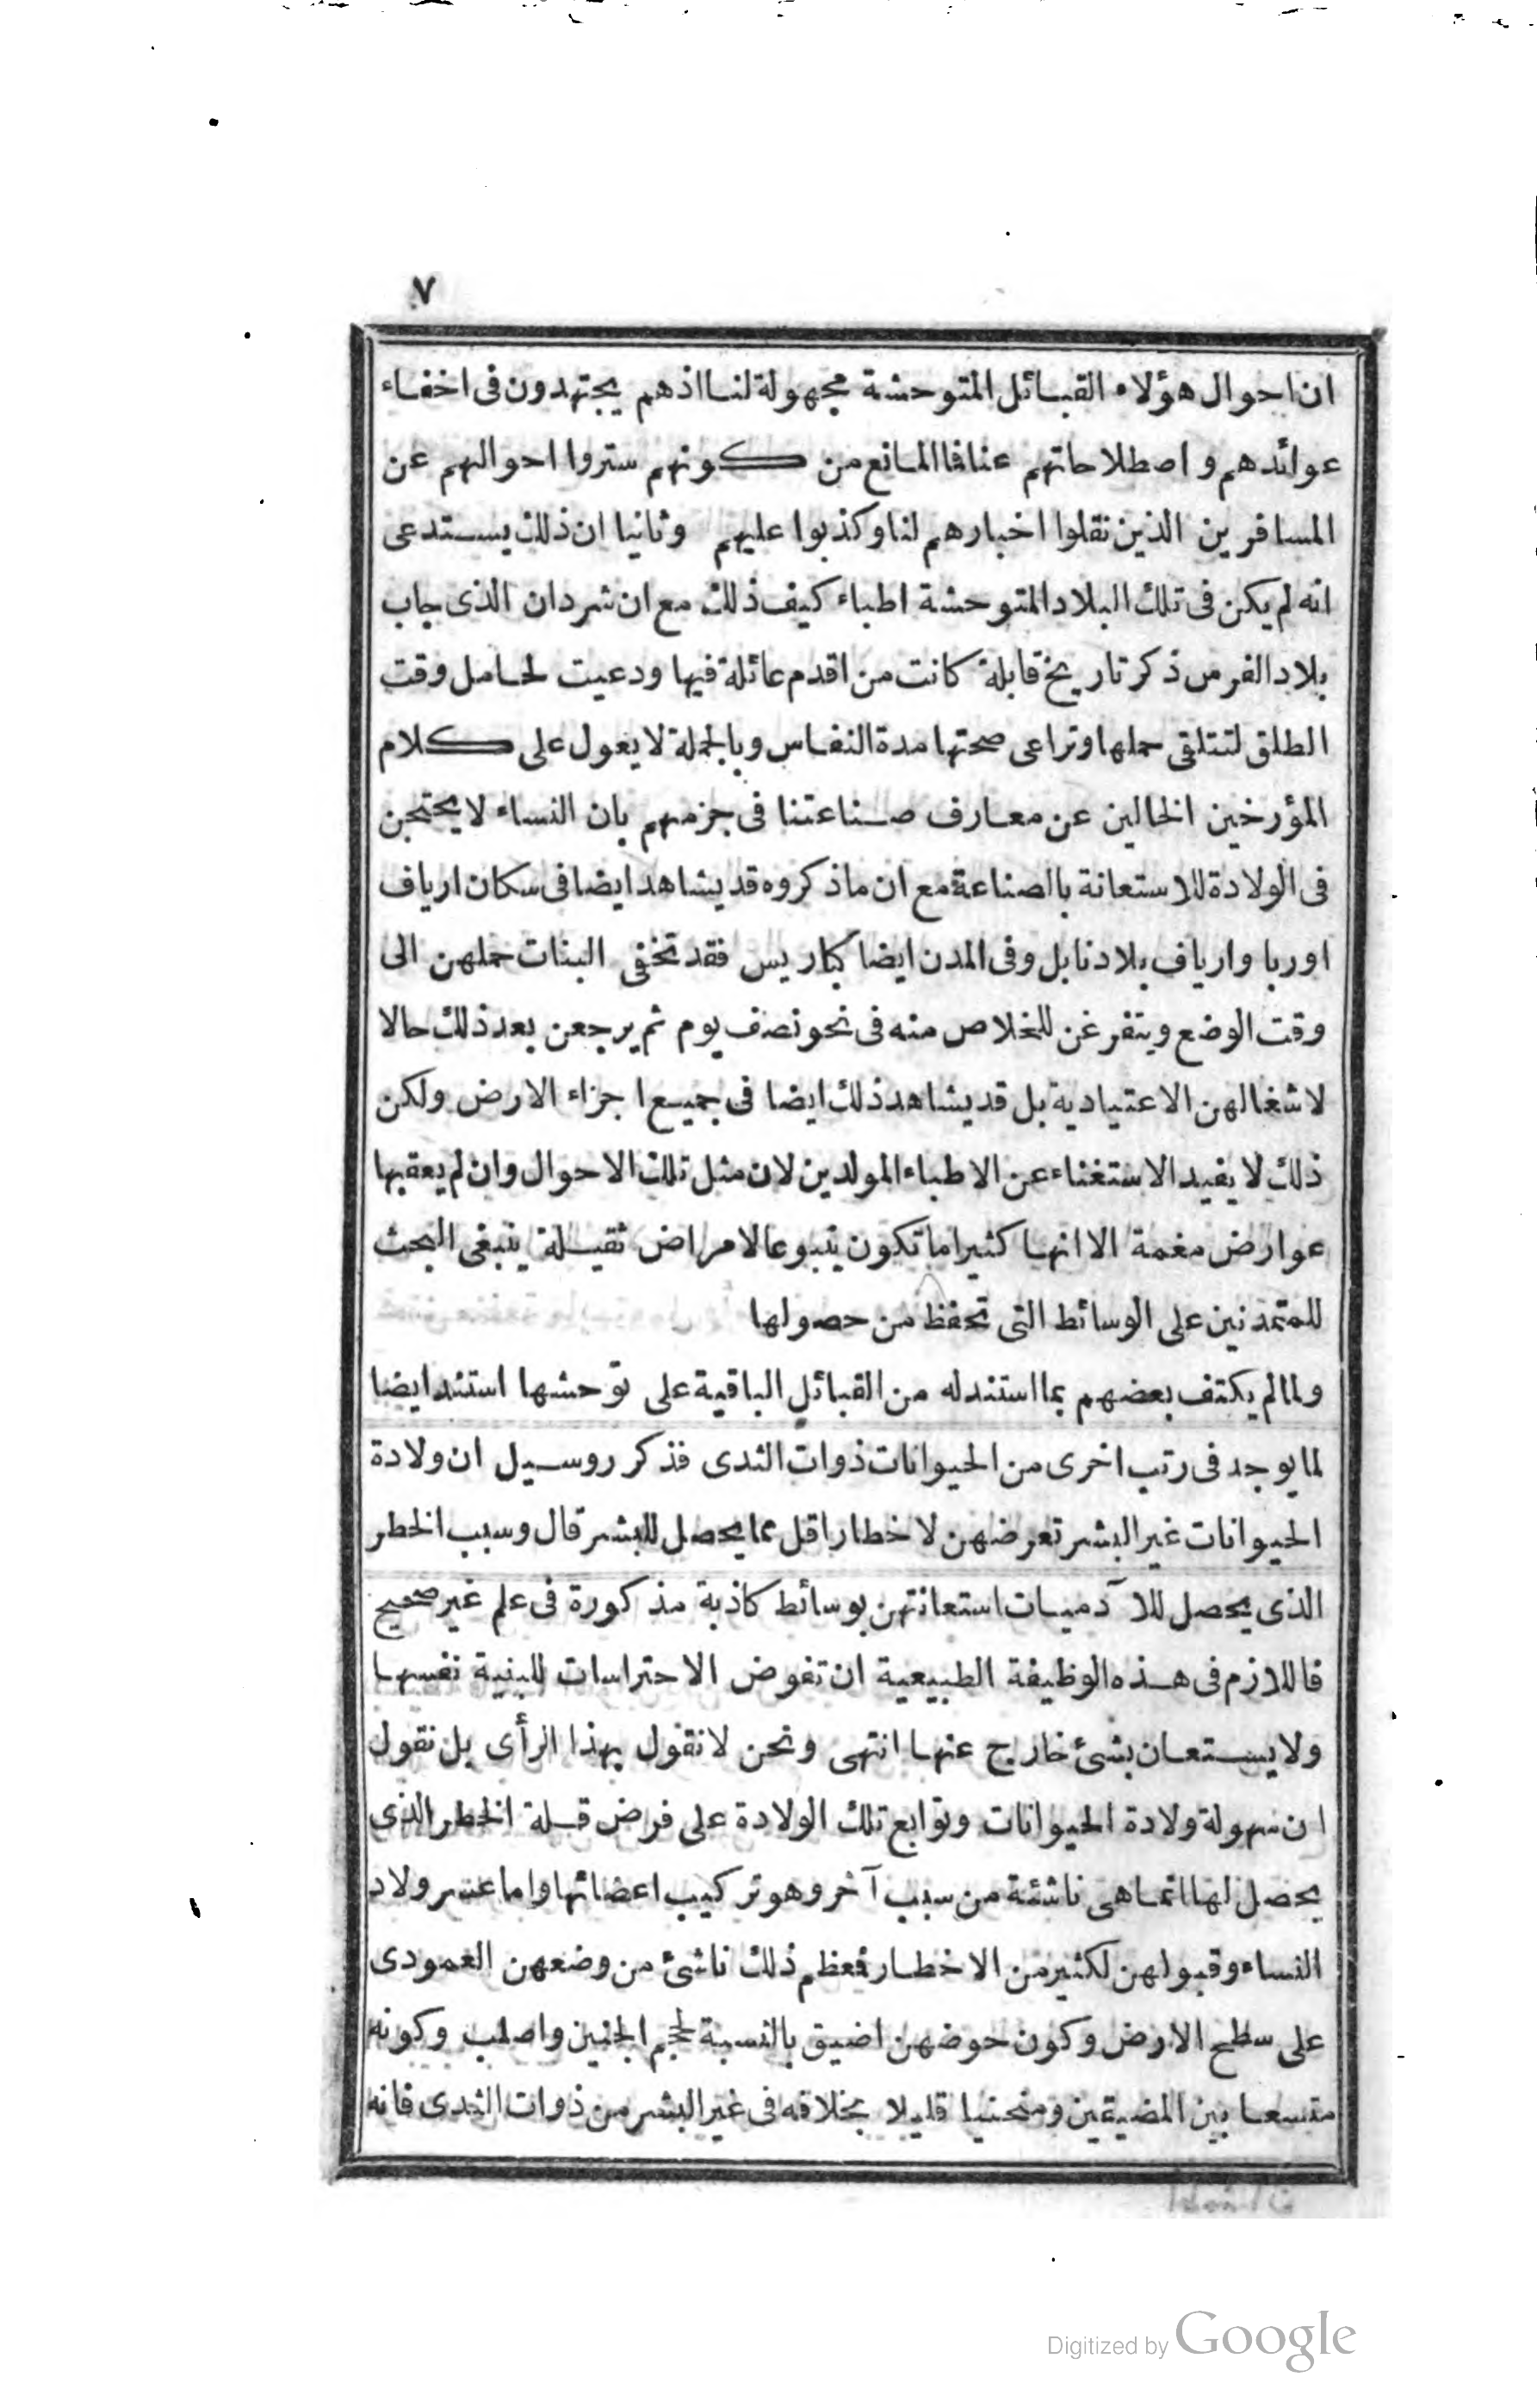 ٧
ان احوال هؤلاء القبائل المتوحشة مجهولة لنا اذ هم يجتهدون فى اخفاء
عوائدهم و اصطلاحاتهم عنا فما المانع من كونهم ستروا احوالهم عن
المسافرين الذين نقلوا اخبارهم لنا وكذبوا عليهم وثانيا ان ذلك يستدعى
انه لم يكن فى تلك البلاد المتوحشة اطباء كيف ذلك مع ان شردان الذى جاب
بلاد الفرس ذكر تاريخ قابلة كانت من اقدم عائلة فيها ودعيت لحامل وقت
الطلق لتتلقى حملها وتراعى صحتها مدة النفاس وبالجملة لا يعول على كلام
المؤرخين الخالين عن معارف صناعتنا فى جزمهم بان النساء لا يحتجن
فى الولادة للاستعانة بالصناعة مع ان ماذكروه قد يشاهد ايضا فى سكان ارياف
اوربا وارياف بلاد نابل وفى المدن ايضا كباريس فقد تخفى البنات حملهن الى
وقت الوضع ويتفرغن للخلاص منه فى نحو نصف يوم ثم يرجعن بعد ذلك حالا
لاشغالهن الاعتيادية بل قد يشاهد ذلك ايضا فى جميع اجزاء الارض ولكن
ذلك لا يفيد الاستغناء عن الاطباء المولدين لان مثل تلك الاحوال وان لم يعقبها
عوارض مغمة الا انها كثيرا ما تكون ينبوعا لامراض ثقيلة ينبغى البحث
للمتمدنين على الوسائط التى تحفظ من حصولها
ولما لم يكتف بعضهم بما استند له من القبائل الباقية على توحشها استند ايضا
لما يوجد فى رتب اخرى من الحيوانات ذوات الثدى فذكر روسيل ان ولادة
الحيوانات غير البشر تعرضهن لاخطار اقل مما يحصل للبشر قال وسبب الخطر
الذى يحصل للآدميات استعانتهن بوسائط كاذبة مذكورة فى علم غير صحيح
فاللازم فى هذه الوظيفة الطبيعية ان تفوض الاحتراسات للبنية نفسها
ولا يستعان بشئ خارج عنها انتهى ونحن لا نقول بهذا الرأى بل نقول
ان سهولة ولادة الحيوانات وتوابع تلك الولادة على فرض قلة الخطر الذى
يحصل لها انما هى ناشئة من سبب آخر وهو تركيب اعضائها واما عسر ولاد
النساء وقبولهن لكثير من الاخطار فعظم ذلك ناشئ من وضعهن العمودى
على سطح الارض وكون حوضهن اضيق بالنسبة لحجم الجنين واصلب وكونه
متسعا بين المضيقين ومنحنيا قليلا بخلافه فى غير البشر من ذوات الثدى فانه
Digitized by Google